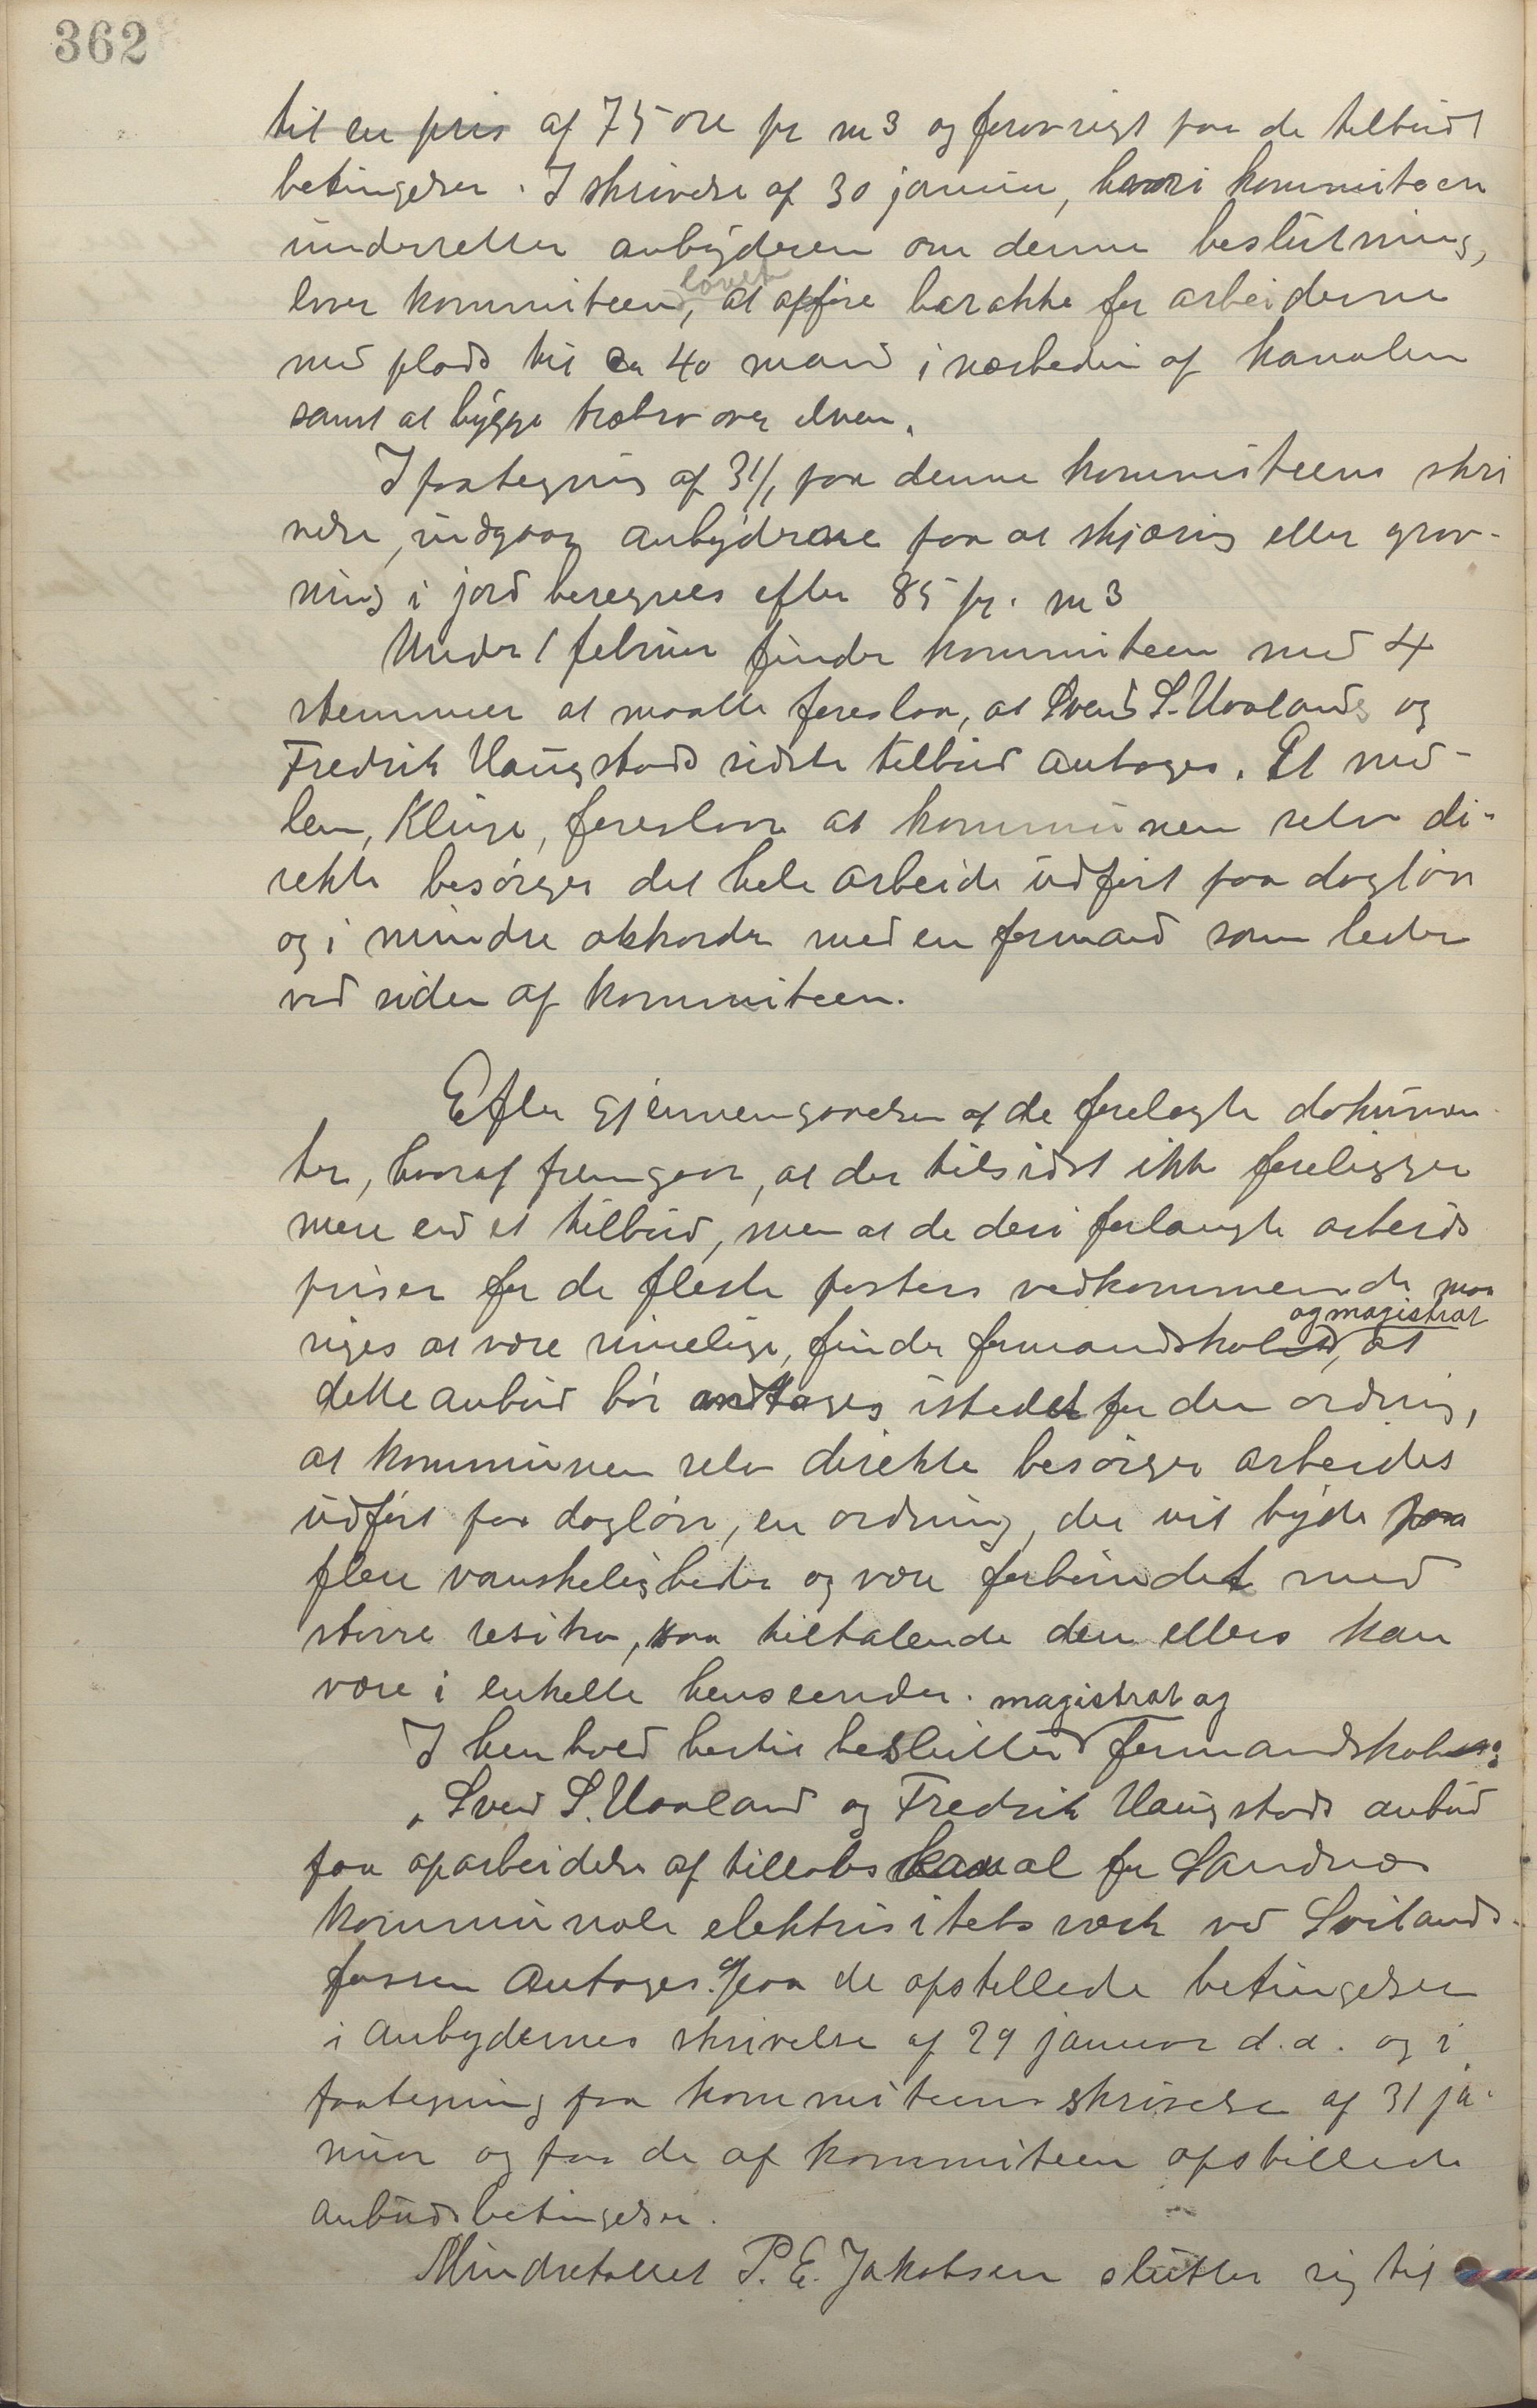 362
til en pris af 75 øre pr m3 og forøvrigt paa de tilbudt
betingelser. I skrivelse af 30 januar, hvori kommiteen
underretter anbyderen om denne beslutning,
lovet
lover kommiteen, at opføre barakke for arbeiderne
med plads til ca 40 mand i nærheden af kanalen
samt at bygge træbro over elven.
I paategning af 31/1 paa denne kommiteens skri
velse, indgaar anbyderne paa at skjæring eller grav-
ning i jord beregnes efter 85 pr. m3
Under 1 februar finder kommiteen med 4
stemmer at maatte foreslaa, at Svend S. Uvalands og
Fredrik Haugstads sidste tilbud antages. Et med-
lem, Kluge, foreslaar at kommunen selv di-
rekte besørger det hele arbeide udført paa dagløn
og i mindre akkorder med en formand som leder
ved siden af kommiteen.
Efter gjennemgaaelsen af de forelagte dokumen-
ter, hvoraf fremgaar, at der tilsidst ikke foreligger
mere end et tilbud, men at de deri forlangte arbeids
priser for de fleste posters vedkommende maa
og magistrat
siges at være rimelige, finder formandskabet, at
dette anbud bør antages istedet for den ordning,
at kommunen selv direkte besørger arbeidet
udført paa dagløn, en ordning, der vil byde paa
flere vanskeligheder og være forbundet med
større risiko, saa tiltalende den ellers kan
være i enkelte henseender.
magistrat og
I henhold hertil beslutter formandskabet:
„Svend S. Uvaland og Fredrik Haugstads anbud
paa oparbeidelse af tilløbskanal for Sandnes
kommunale elektrisitetsverk ved Svilands-
fossen antages paa de opstillede betingelser
i anbydernes skrivelse af 29 januar d.a. og i
paategning paa kommiteens skrivelse af 31 ja-
nuar og paa de af kommiteen opstillede
anbudsbetingelser.
Mindretallet P. E. Jakobsen slutter sig til